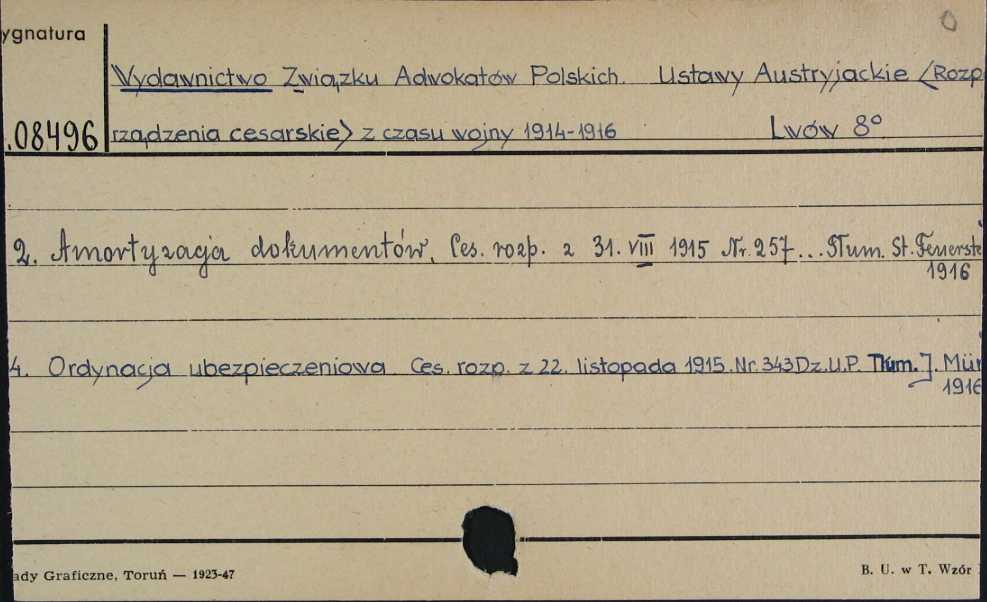 ygnatura
Wydawnictwo Związku Adwokatów Polskich. Ustawy Austryjackie <Rozp
.08496 rządzenia cesarskie> z czasu wojny 1914-1916 Lwów 8°
2. Amortyzacja dokumentów. Ces. rozp. z 31. VIII 1915 Nr. 257... Tłum. St. Feuerste
1916
4. Ordynacja ubezpieczeniowa. Ces. rozp. z 22. listopada 1915. Nr. 343 Dz.U.P. Tłum. J. Mün
1916
ady Graficzne, Toruń — 1923-47 B. U. w T. Wzór